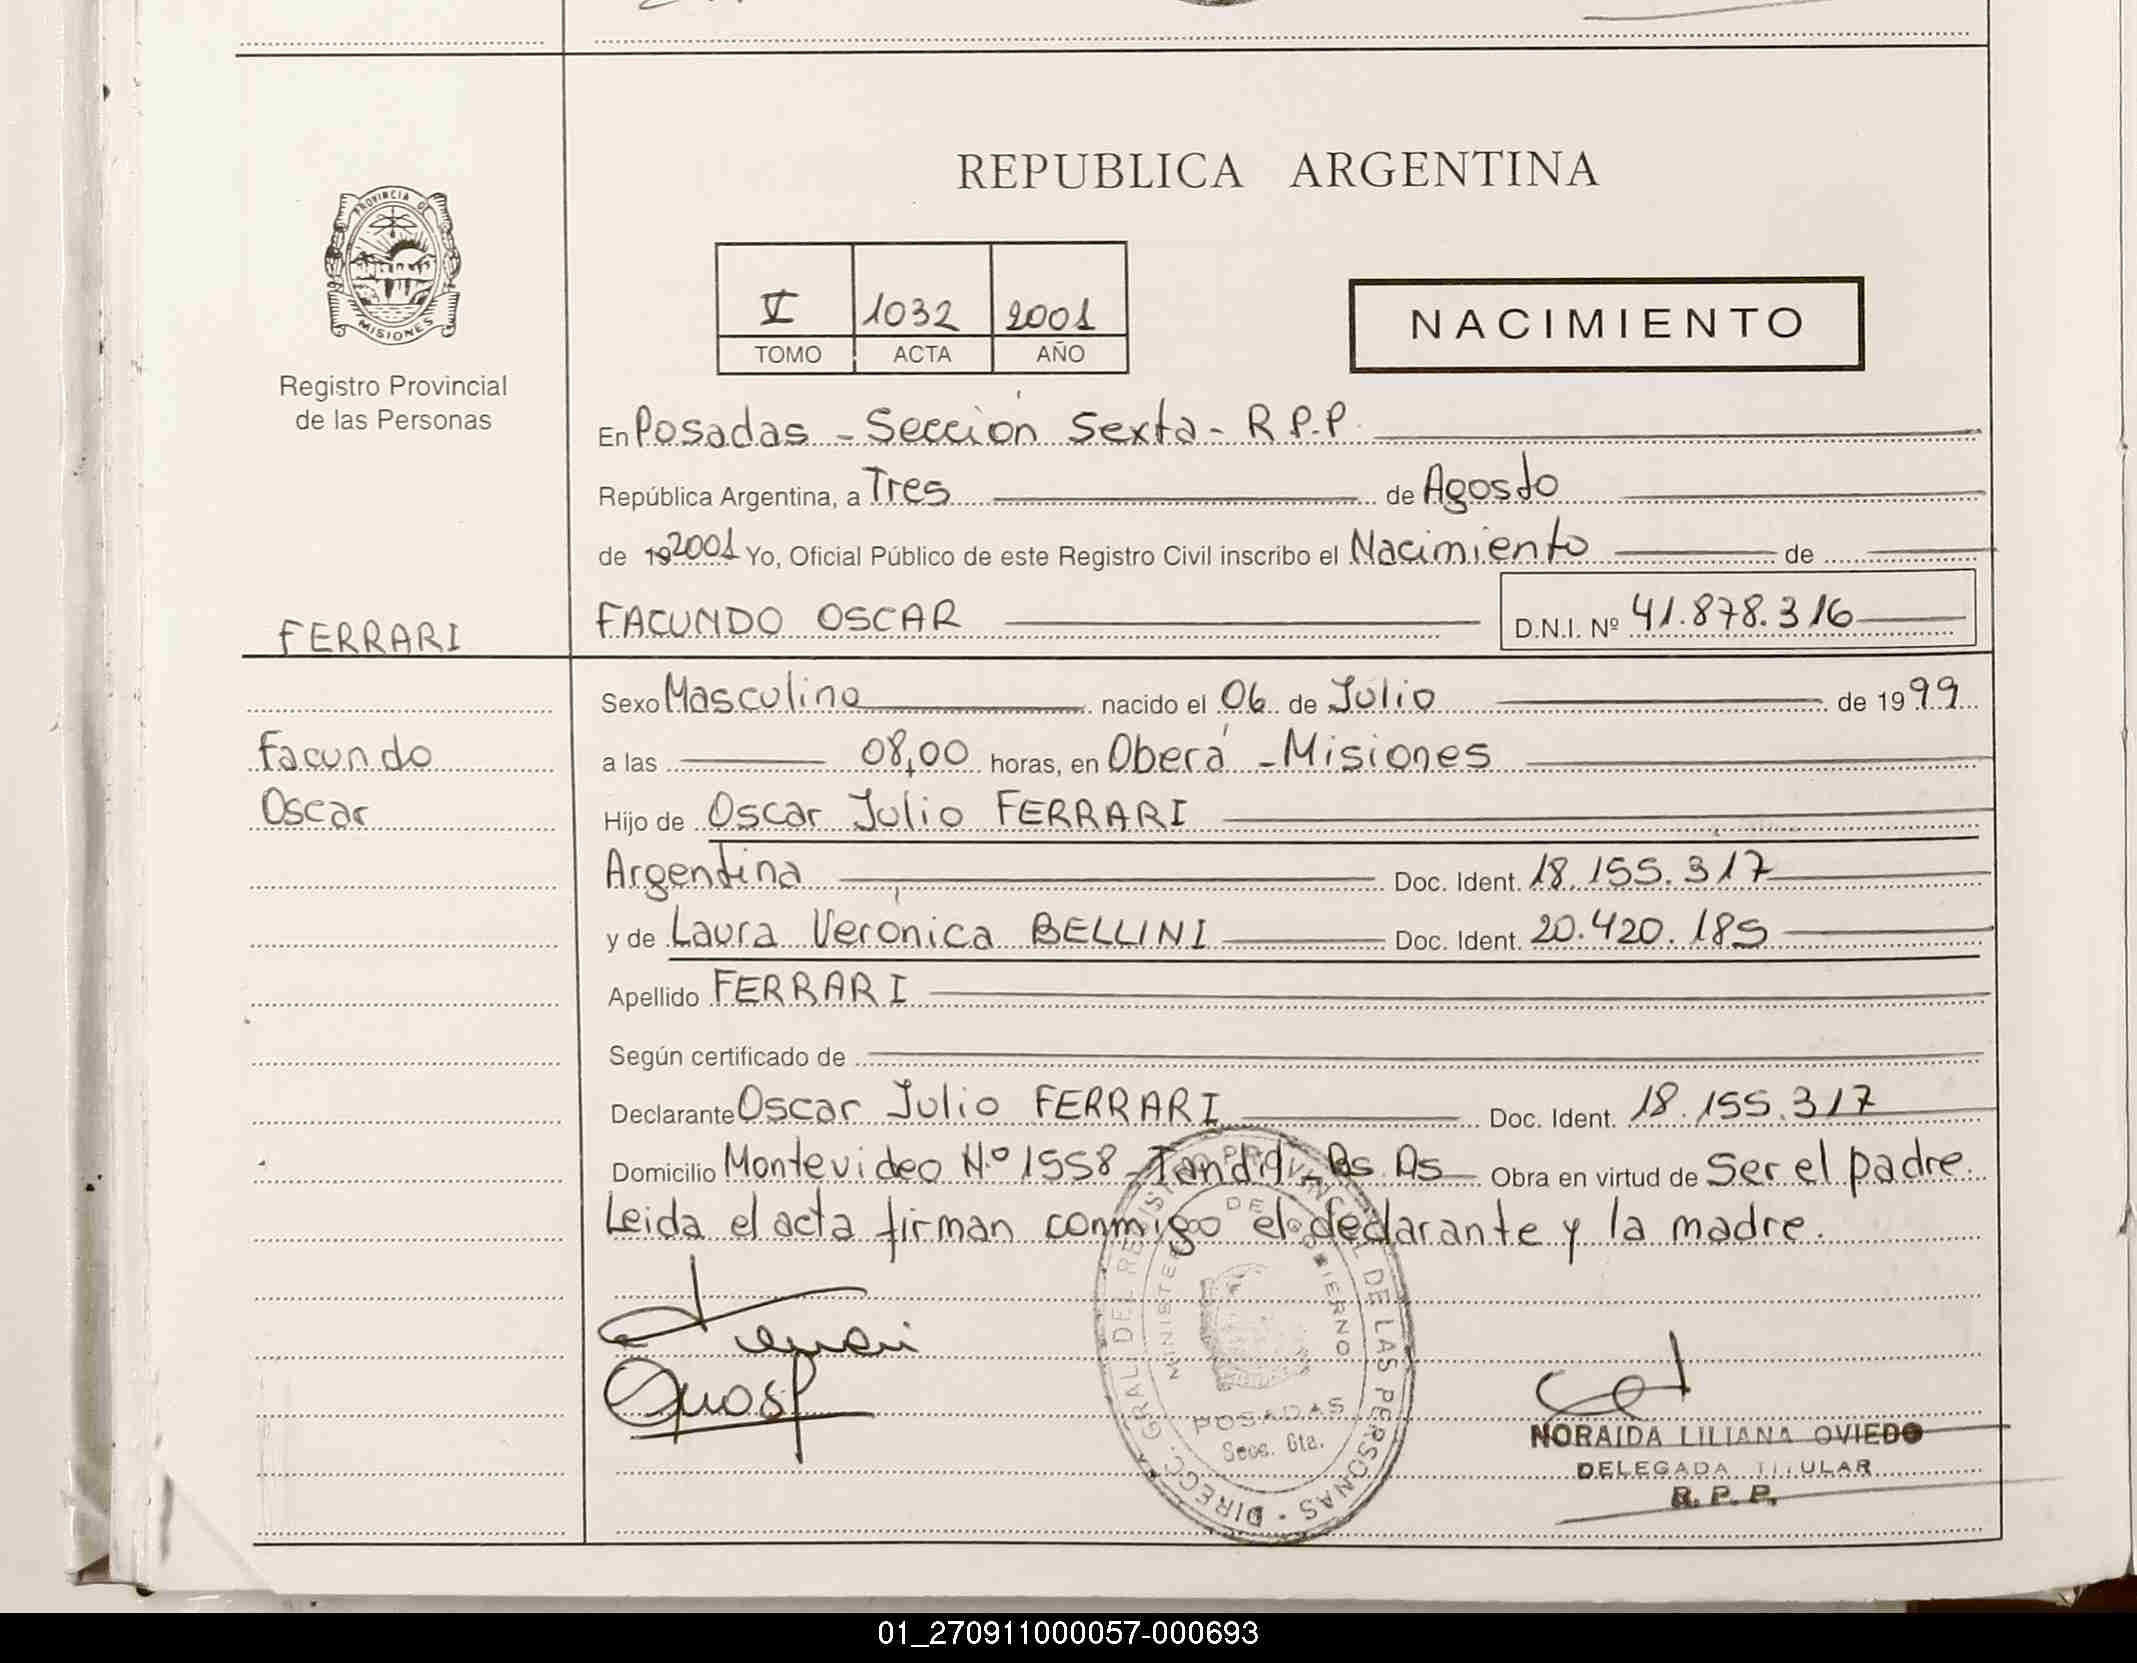 REPUBLICA ARGENTINA
PROVINCIA DE
MISIONES
Registro Provincial
de las Personas
V 1032 2001
TOMO ACTA AÑO
NACIMIENTO
En Posadas - Sección Sexta - R P.P.
República Argentina, a Tres de Agosto
de 192001 Yo, Oficial Público de este Registro Civil inscribo el Nacimiento de
FERRARI
FACUNDO OSCAR D.N.I. Nº 41.878.316
Sexo Masculino nacido el 06 de Julio de 1999
Facundo
a las 08,00 horas, en Oberá - Misiones
Oscar
Hijo de Oscar Julio FERRARI
Argentina Doc. Ident. 18.155.317
y de Laura Verónica BELLINI Doc. Ident. 20.420.185
Apellido FERRARI
Según certificado de
Declarante Oscar Julio FERRARI Doc. Ident. 18.155.317
Domicilio Montevideo N.º 1558 - Tandil - Bs As Obra en virtud de Ser el padre.
Leida el acta firman conmigo el declarante y la madre.
DIRECC. GRAL. DEL REGISTRO PROVINCIAL DE LAS PERSONAS
MINISTERIO DE GOBIERNO
POSADAS
Secc. 6ta.
NORAIDA LILIANA OVIEDO
DELEGADA TITULAR
R. P. P.
01_270911000057-000693